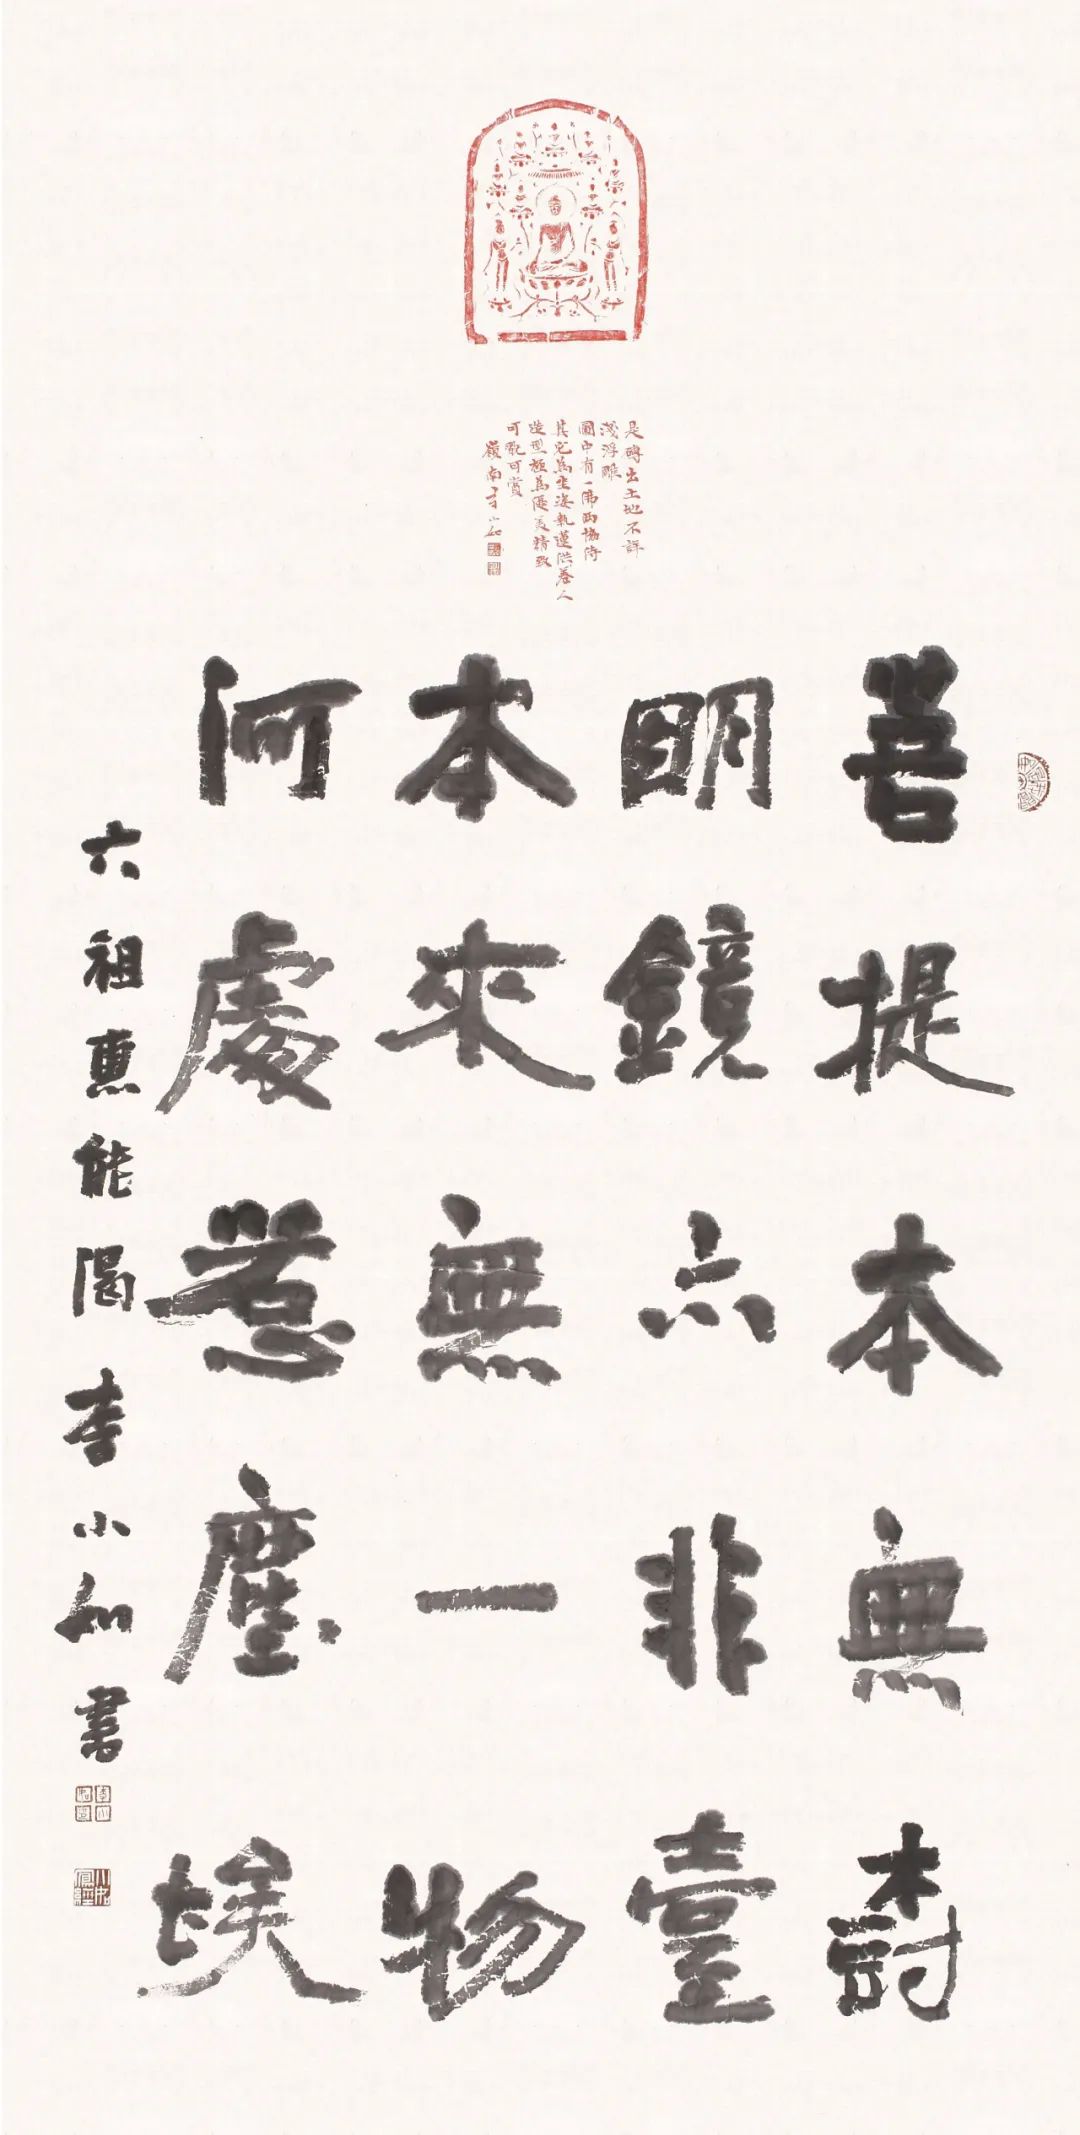 是磚出土地不詳
淺浮雕
圖中有一佛兩協侍
其它為坐姿執蓮供養人
造型極為優美精致
可可賞
嶺南李小如
菩提本無樹
明鏡亦非臺
本來無一物
何處惹塵埃
六祖惠能偈李小如書